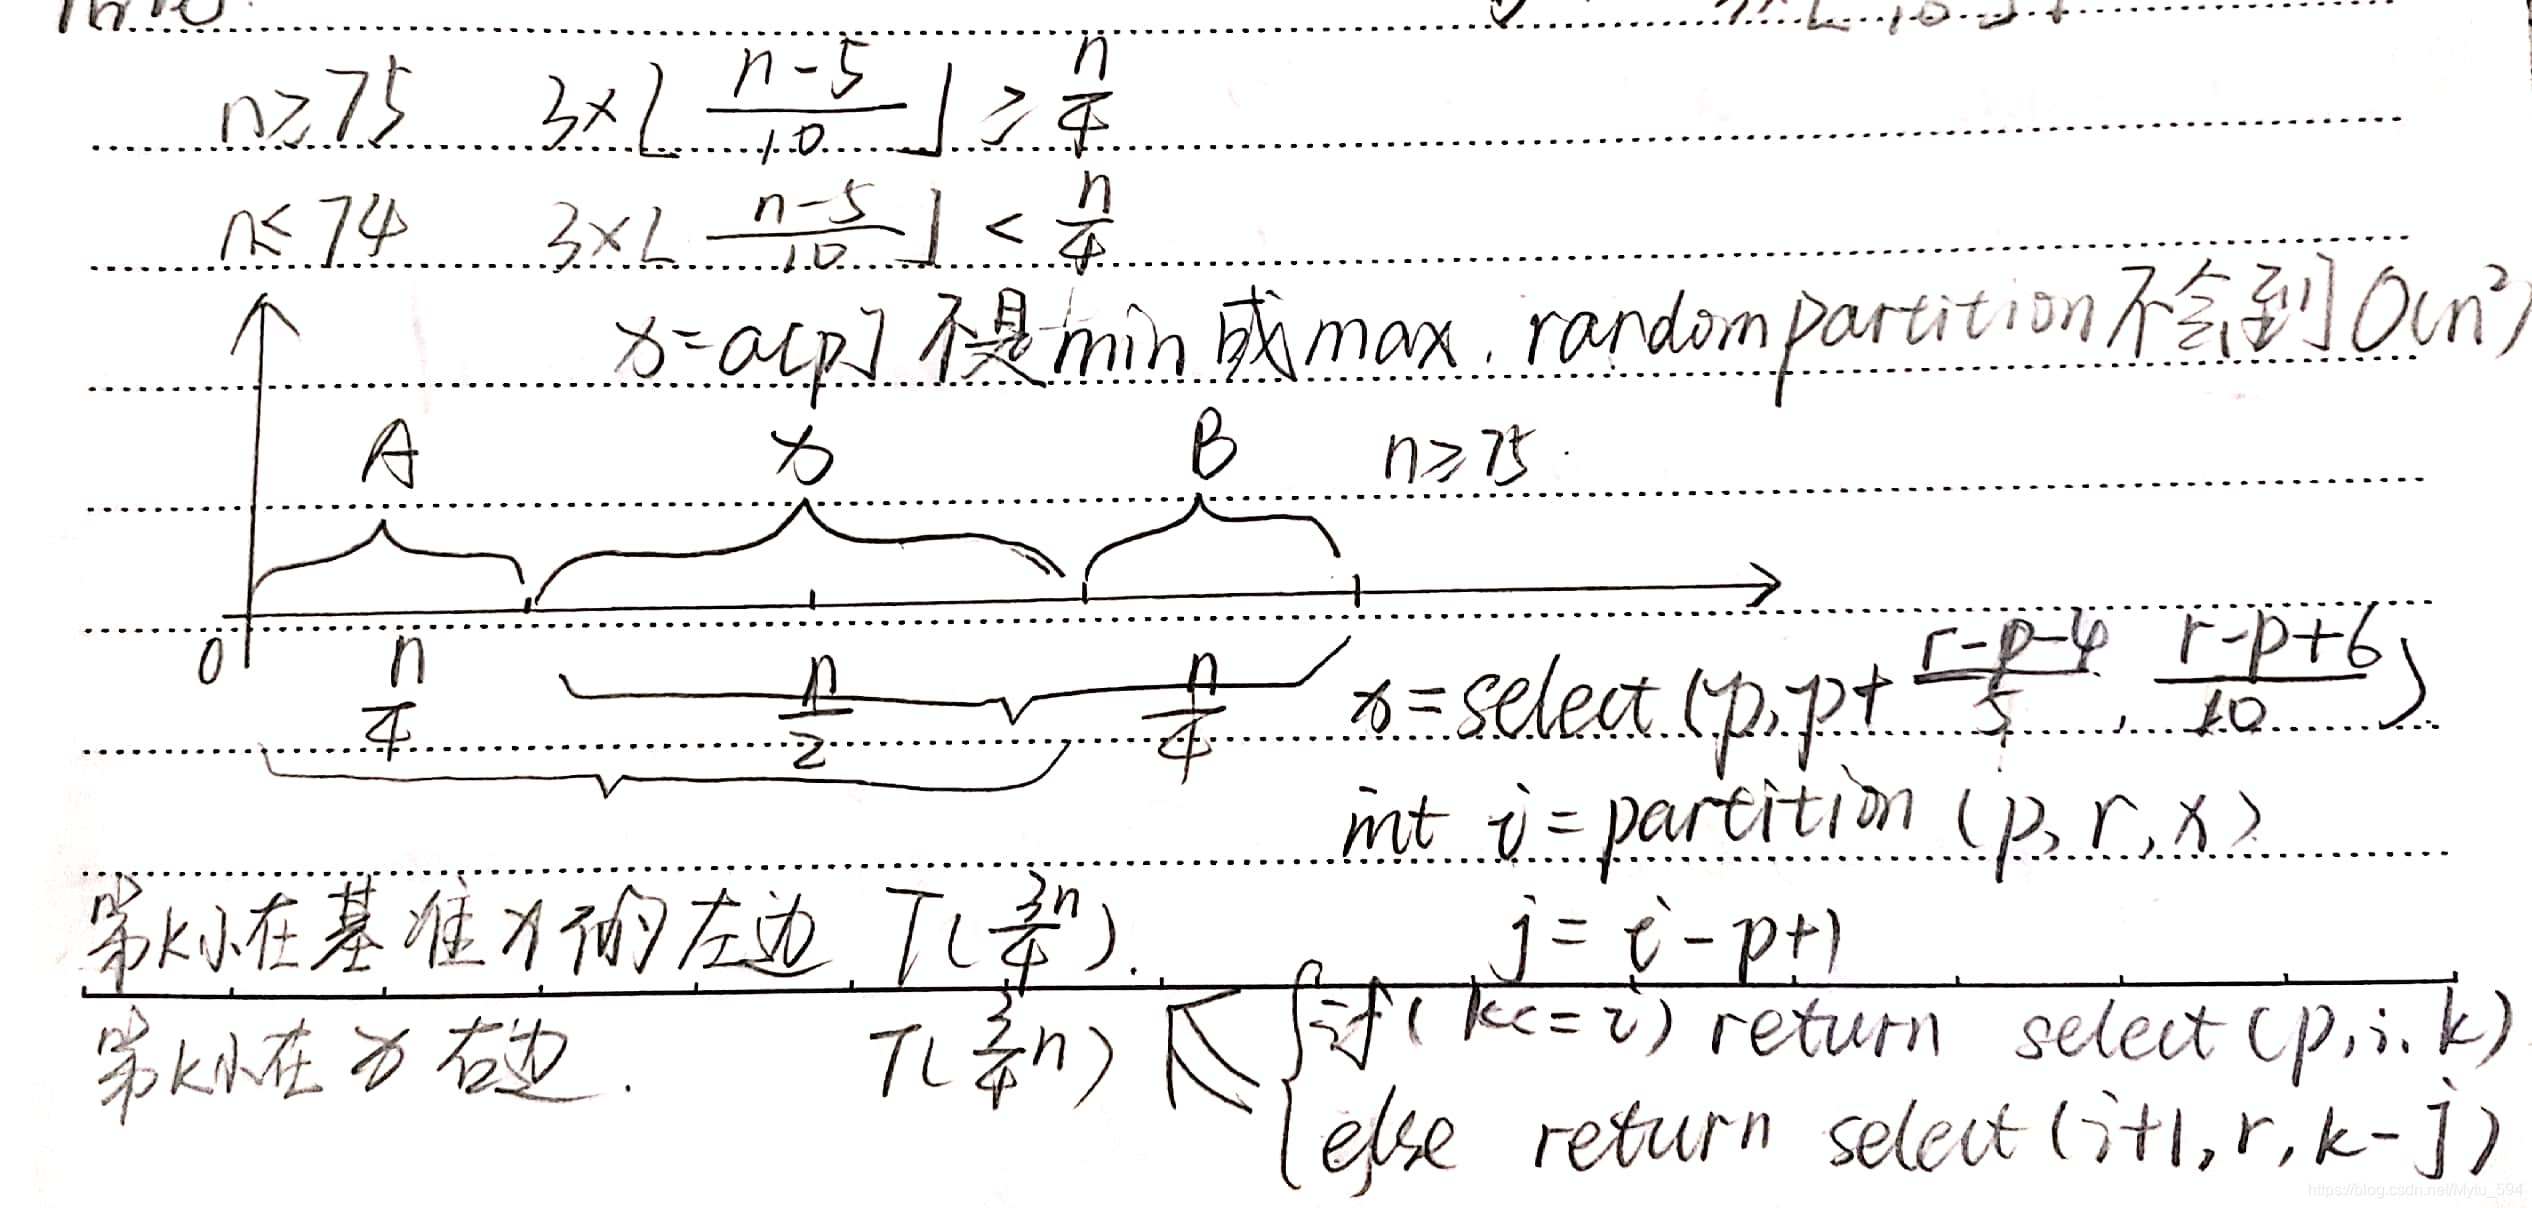 n≥75 3×⌊(n-5)/10⌋ ≥ n/4
n≤74 3×⌊(n-5)/10⌋ < n/4
x=a[p]不是min或max. randompartition不会到O(n²)
A x B n≥75.
0 n/4 n/2 n/4
x=select(p,p+(r-p-4)/5, (r-p+6)/10)
int i=partition(p,r,x)
第k小在基准x的左边 T(3n/4).
j=i-p+1
第k小在x右边. T(3/4 n)
if(k<=i) return select(p,i,k)
else return select(i+1,r,k-j)
https://blog.csdn.net/Mylu_594